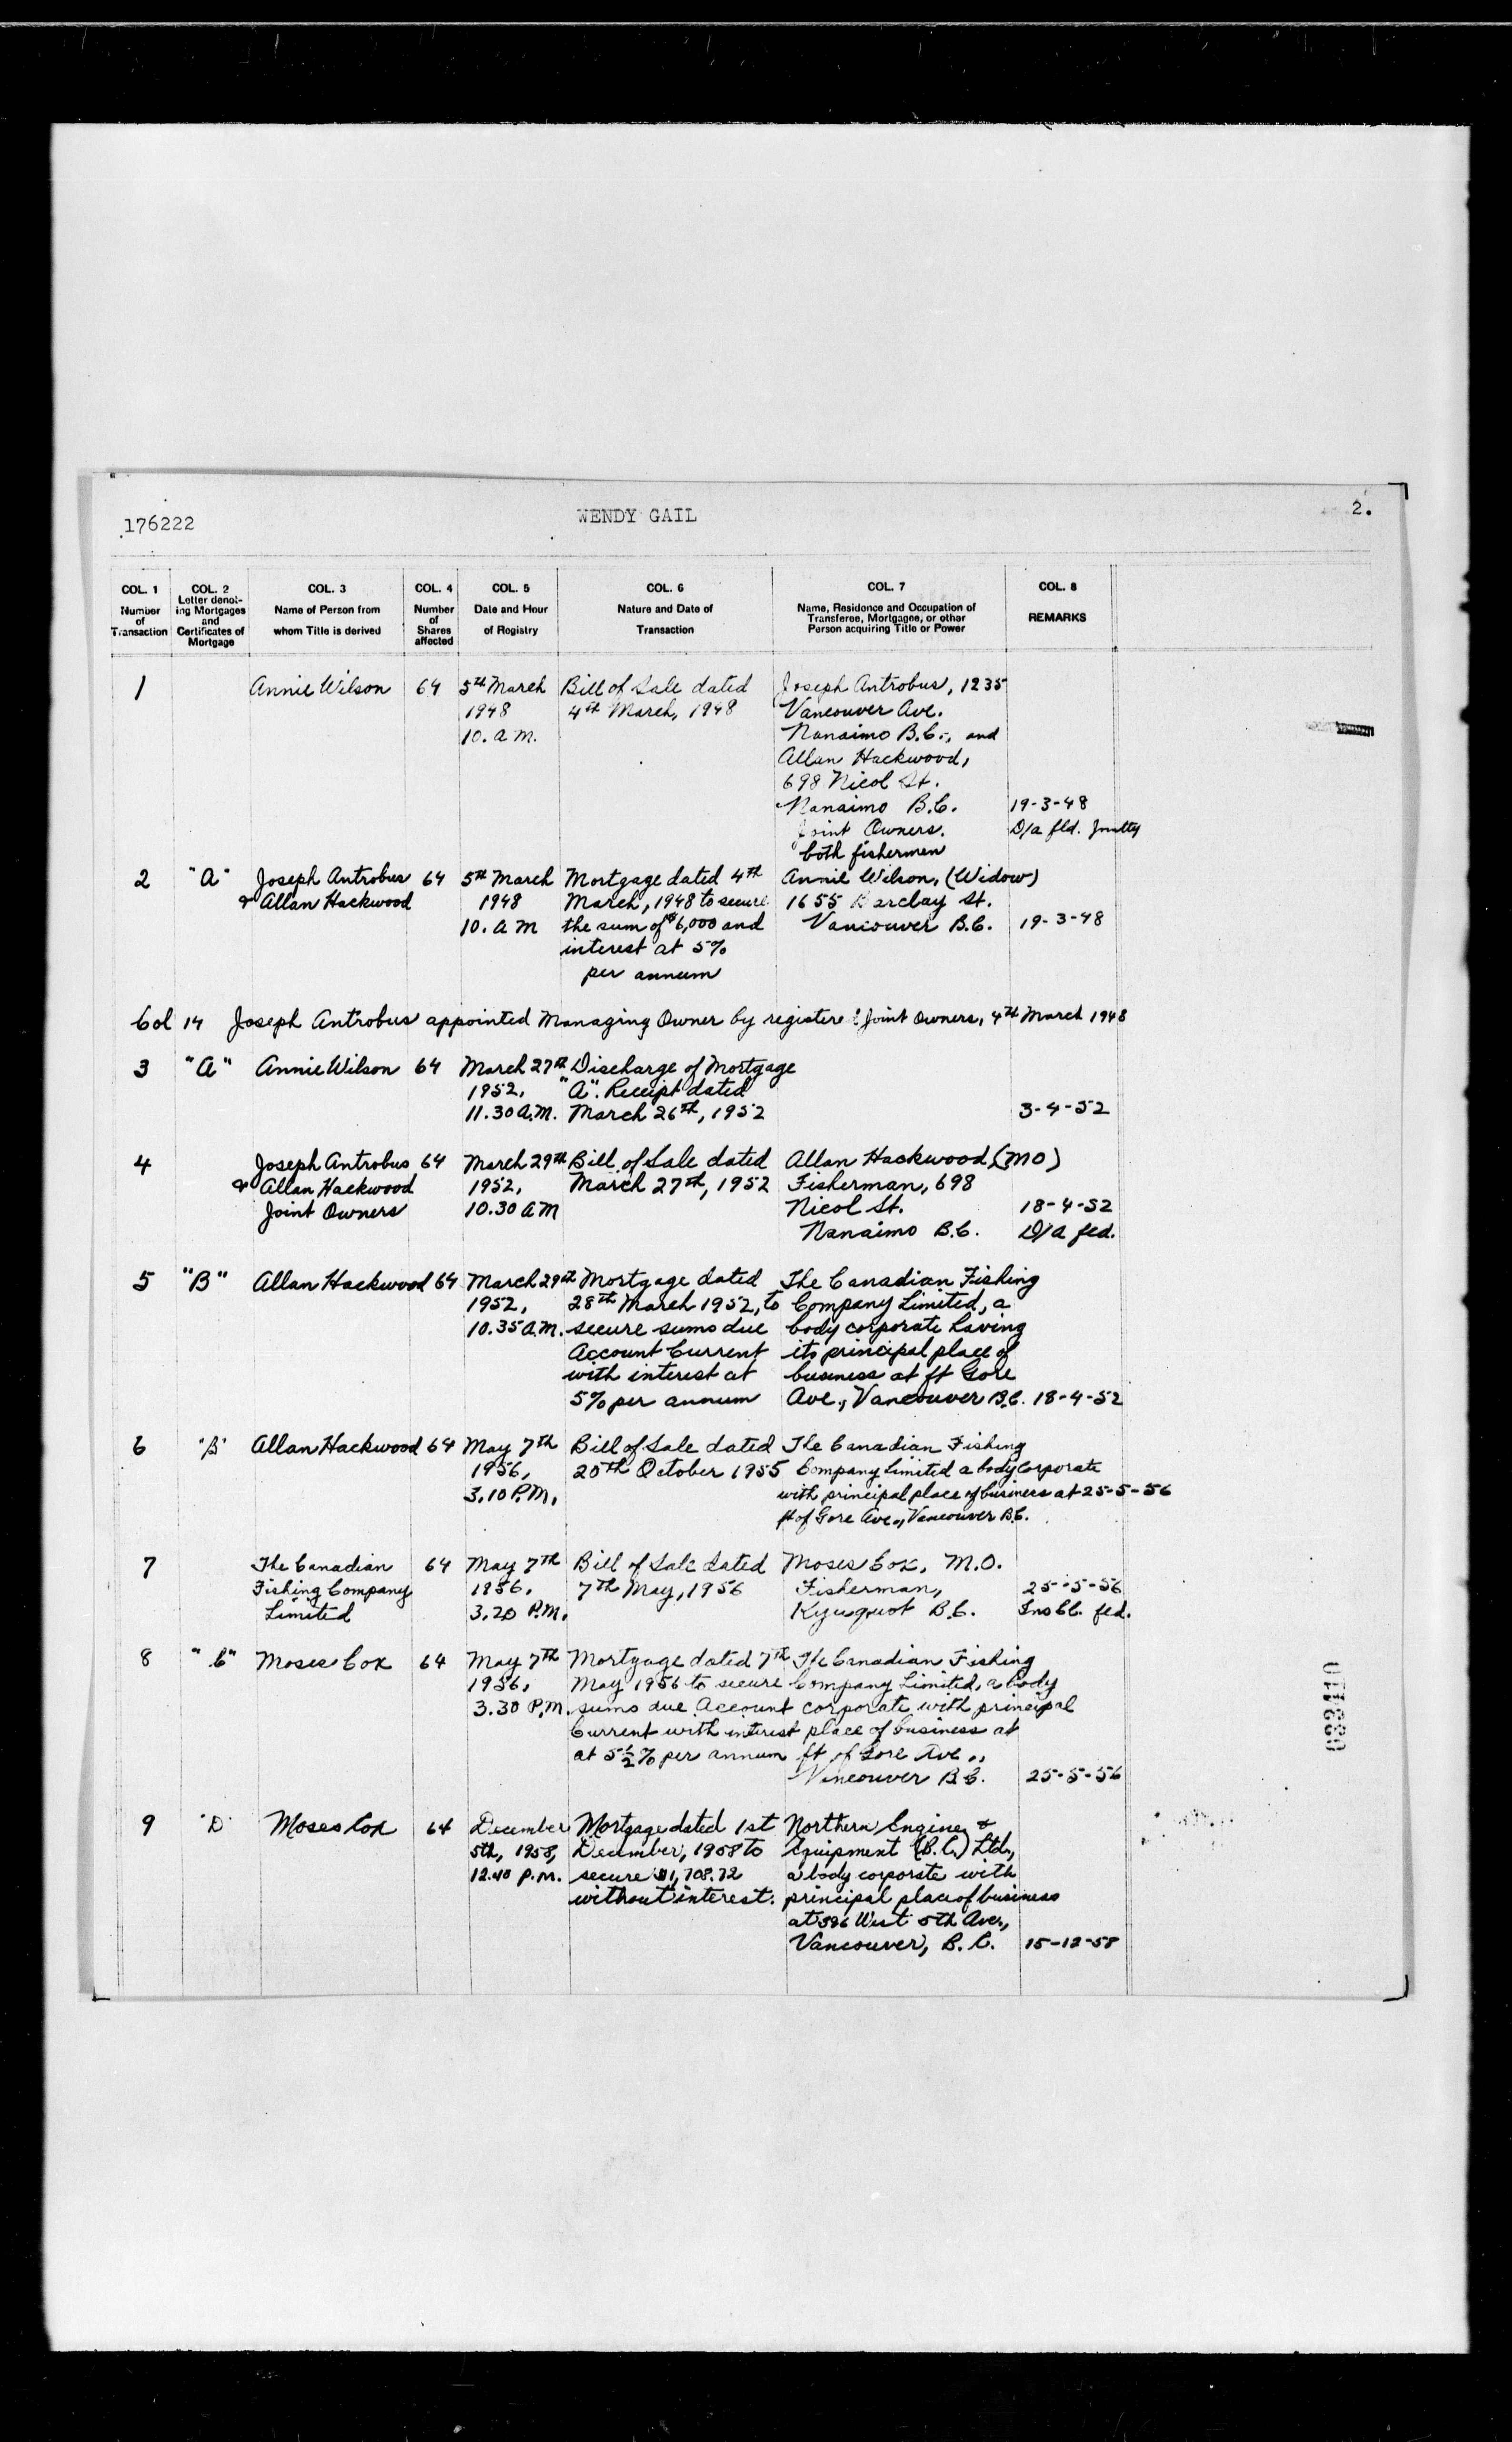 176222 WENDY GAIL 2.
COL. 1 COL. 2 COL. 3 COL. 4 COL. 5 COL. 6 COL. 7 COL. 8
Number of Transaction
Letter denoting Mortgages and Certificates of Mortgage
Name of Person from whom Title is derived
Number of Shares affected
Date and Hour of Registry
Nature and Date of Transaction
Name, Residence and Occupation of Transferee, Mortgagee, or other Person acquiring Title or Power
REMARKS
1 Annie Wilson 64 5th March Bill of Sale dated Joseph Antrobus, 1235
1948 4th March, 1948 Vancouver Ave.
10. a m. Nanaimo B.C., and
Allan Hackwood,
698 Nicol St.
Nanaimo B.C. 19-3-48
Joint Owners. D/a fld.
both fishermen
2 "A" Joseph Antrobus 64 5th March Mortgage dated 4th Annie Wilson, (Widow)
& Allan Hackwood 1948 March, 1948 to secure 1655 Barclay St.
10. a m the sum of $6,000 and Vancouver B.C. 19-3-48
interest at 5%
per annum
Col 14 Joseph Antrobus appointed Managing Owner by registered Joint Owners, 4th March 1948
3 "A" Annie Wilson 64 March 27th Discharge of Mortgage
1952, "A". Receipt dated
11.30 A.M. March 26th, 1952 3-4-52
4 Joseph Antrobus 64 March 29th Bill of Sale dated Allan Hackwood (MO)
& Allan Hackwood 1952, March 27th, 1952 Fisherman, 698
Joint Owners 10.30 AM Nicol St. 18-4-52
Nanaimo B.C. D/a fed.
5 "B" Allan Hackwood 64 March 29th Mortgage dated The Canadian Fishing
1952, 28th March 1952, to Company Limited, a
10.35 A.M. secure sums due body corporate having
Account Current its principal place of
with interest at business at ft Gore
5% per annum Ave., Vancouver B.C. 18-4-52
6 "B" Allan Hackwood 64 May 7th Bill of Sale dated The Canadian Fishing
1956, 20th October 1955 Company Limited a body Corporate
3.10 P.M. with principal place of business at 25-5-56
ft of Gore Ave., Vancouver B.C.
7 The Canadian 64 May 7th Bill of Sale dated Moses Cox, M.O.
Fishing Company 1956, 7th May, 1956 Fisherman, 25-5-56
Limited 3.20 P.M. Kyuquot B.C. fed.
8 "C" Moses Cox 64 May 7th Mortgage dated 7th The Canadian Fishing
1956, May 1956 to secure Company Limited, a body
3.30 P.M. sums due Account corporate with principal
Current with interest place of business at
at 5½% per annum ft of Gore Ave.,
Vancouver B.C. 25-5-56
9 "D" Moses Cox 64 December Mortgage dated 1st Northern Engine &
5th, 1958, December, 1958 to Equipment (B.C.) Ltd.,
12.40 P.M. secure $1,708.72 a body corporate with
without interest. principal place of business
at 596 West 5th Ave.,
Vancouver, B.C. 15-12-58